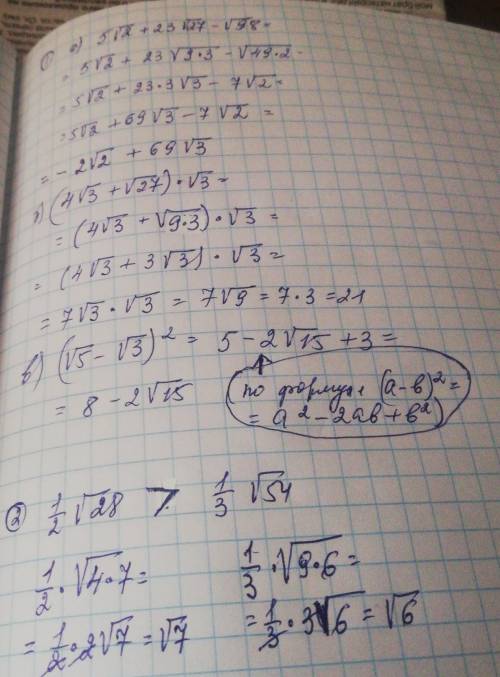 ① а) 5√2 + 23√27 - √98 =
= 5√2 + 23√9·3 - √49·2 =
= 5√2 + 23·3√3 - 7√2 =
= 5√2 + 69√3 - 7√2 =
= -2√2 + 69√3
б) (4√3 + √27)·√3 =
= (4√3 + √9·3)·√3 =
= (4√3 + 3√3)·√3 =
= 7√3·√3 = 7√9 = 7·3 = 21
в) (√5 - √3)² = 5 - 2√15 + 3 =
= 8 - 2√15
(по формуле (а-в)² =
= а² - 2ав + в²)
② 1/2 √28 > 1/3 √54
1/2 · √4·7 = 1/3 · √9·6 =
= 1/2 · 2√7 = √7 = 1/3 · 3√6 = √6